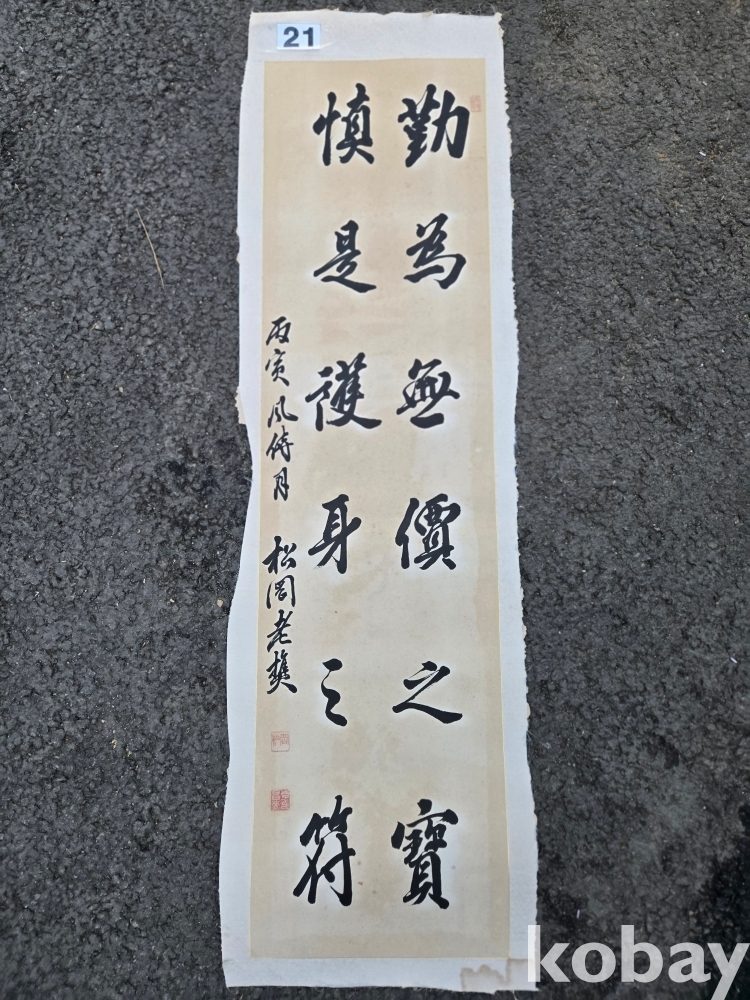 21
勤為無價之寶
慎是護身之符
丙寅 風倚月 松岡老樵
kobay